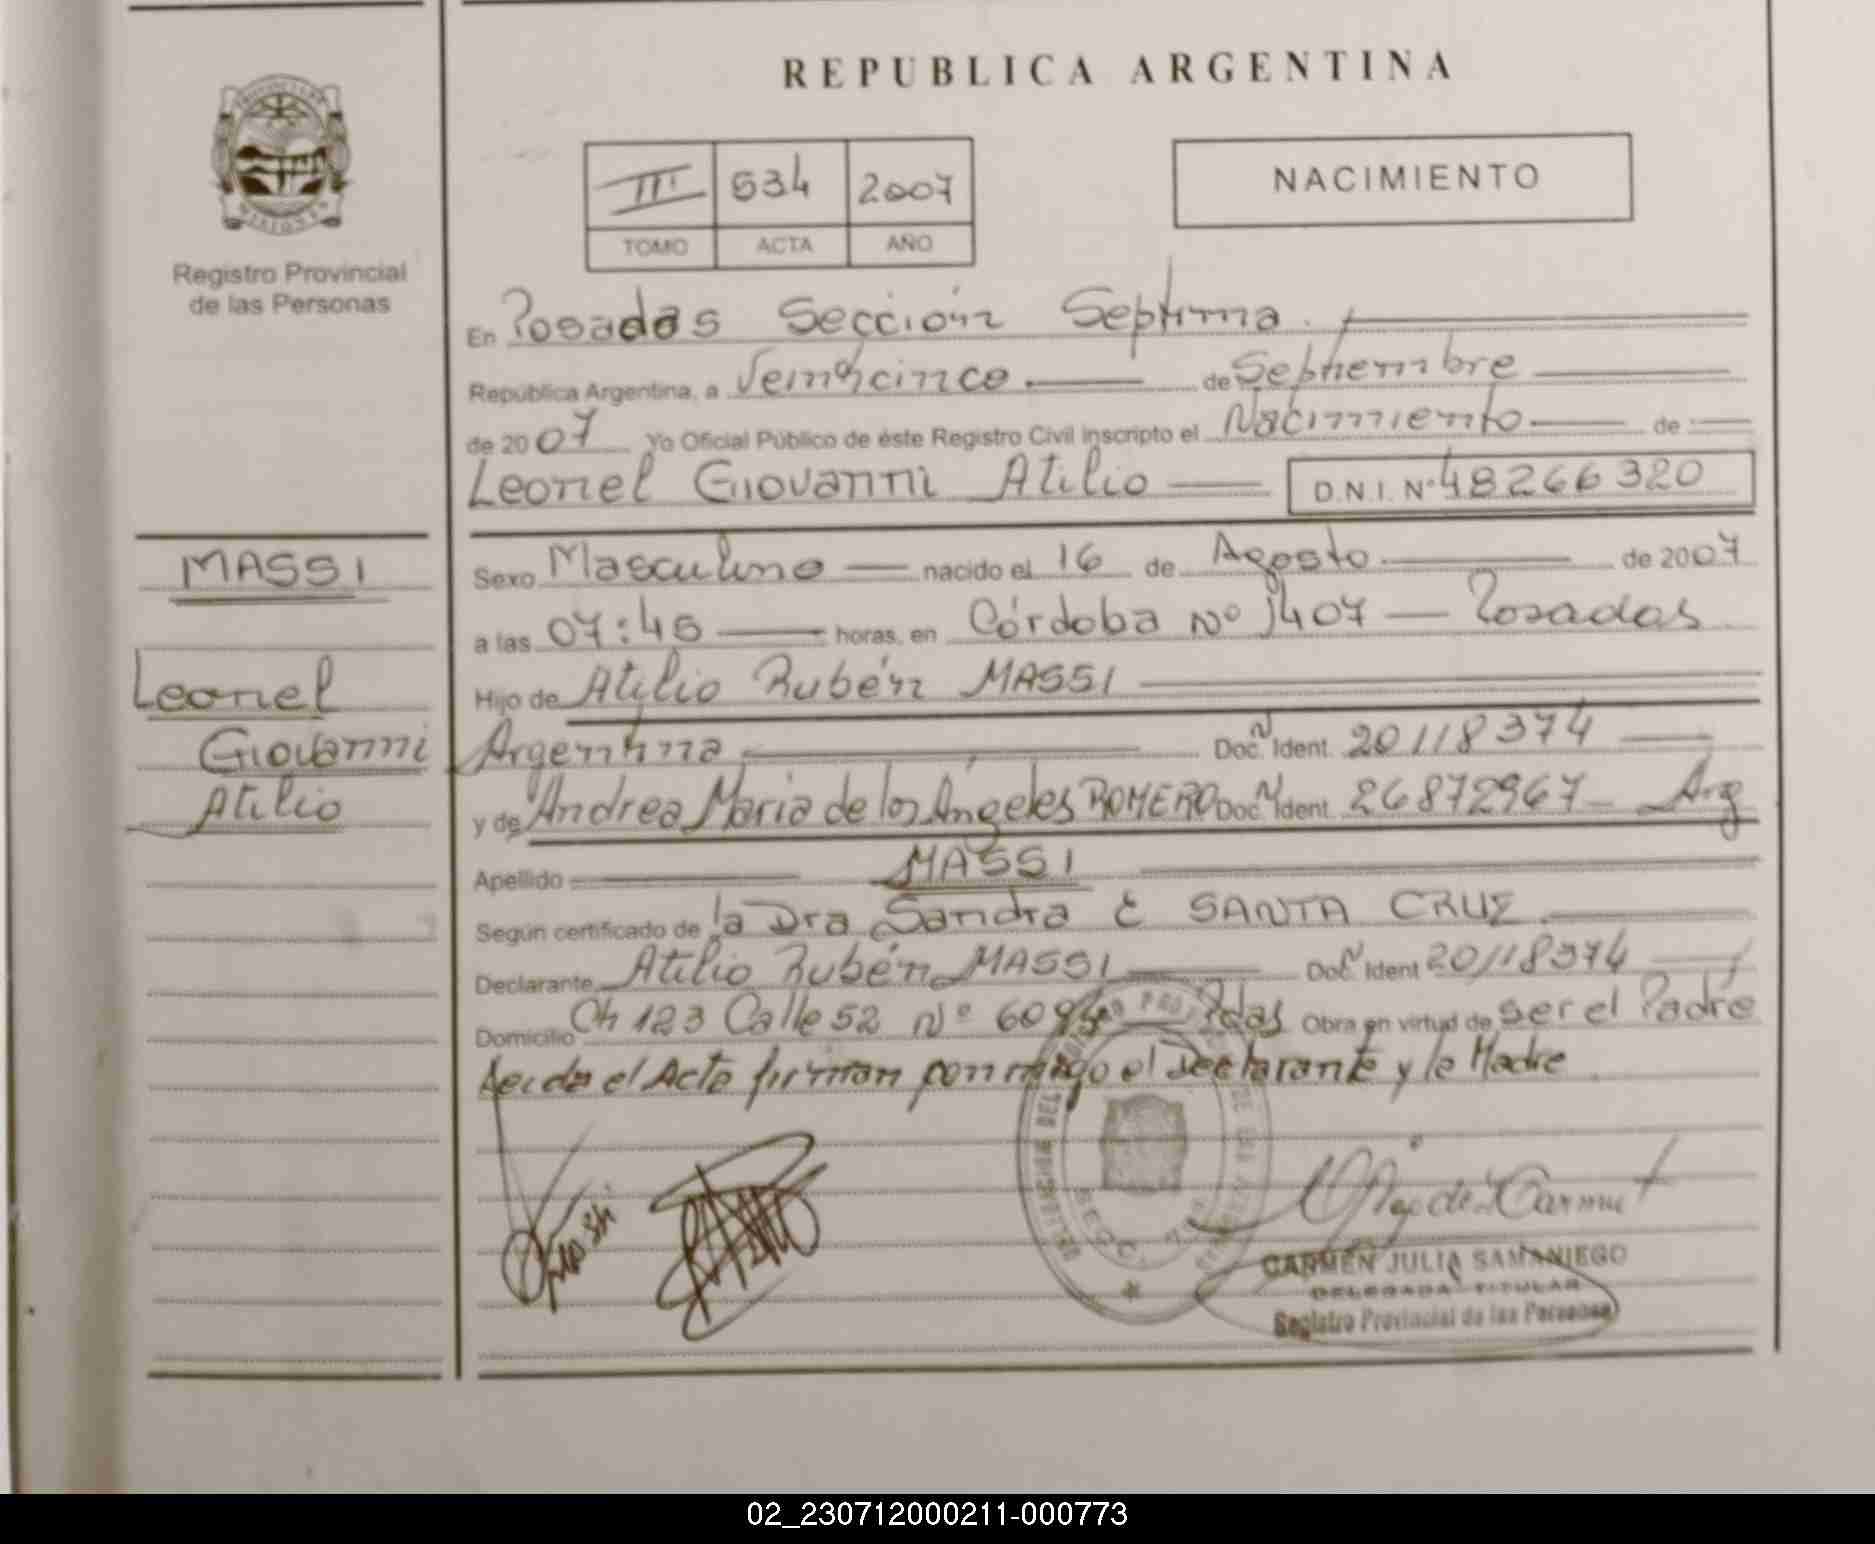 REPUBLICA ARGENTINA
III 534 2007
TOMO ACTA AÑO
NACIMIENTO
PROVINCIA DE
MISIONES
Registro Provincial
de las Personas
En Posadas Sección Septima
República Argentina, a Veinticinco de Septiembre
de 2007 Yo Oficial Público de éste Registro Civil inscripto el Nacimiento de
Leonel Giovanni Atilio D.N.I. Nº 48266320
MASSI
Leonel
Giovanni
Atilio
Sexo Masculino nacido el 16 de Agosto de 2007
a las 07:45 horas, en Córdoba Nº 1407 — Posadas
Hijo de Atilio Rubén MASSI
Argentina Doc. Ident. 20118374
y de Andrea Maria de los Ángeles ROMERO Doc. Ident. 26872967 Arg
Apellido MASSI
Según certificado de la Dra Sandra E SANTA CRUZ
Declarante Atilio Rubén MASSI Doc. Ident 20118374
Domicilio Ch 123 Calle 52 Nº Pdas Obra en virtud de ser el Padre
Leida el Acta firman conmigo el Declarante y la Madre
CARMEN JULIA SAMANIEGO
DELEGADA TITULAR
Registro Provincial de las Personas
02_230712000211-000773